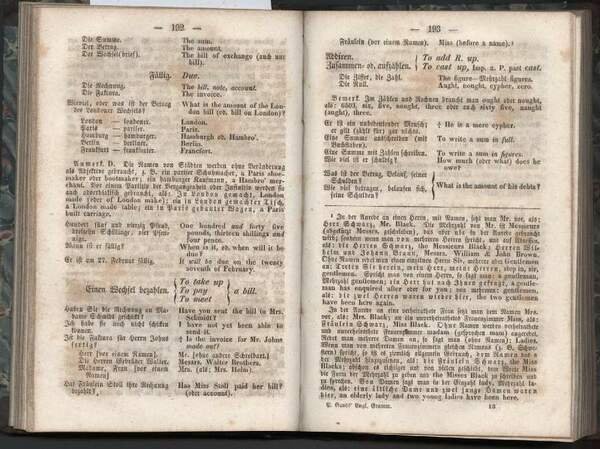 — 192 —
Die Summe. The sum.
Der Betrag. The amount.
Der Wechsel(brief). The bill of exchange (auch nur
bill).
Fällig. Due.
Die Rechnung. The bill, note, account.
Die Faktura. The invoice.
Wieviel, oder was ist der Betrag What is the amount of the Lon-
des Londoner Wechsels? don bill (et. bill on London)?
London — londoner. London.
Paris — pariser. Paris.
Hamburg — hamburger. Hamburgh od. Hambro'.
Berlin — berliner. Berlin.
Frankfurt — frankfurter. Francfort.
Anmerk. D. Die Namen von Städten werden ohne Veränderung
als Adjektive gebraucht, z. B. ein pariser Schuhmacher, a Paris shoe-
maker oder bootmaker; ein hamburger Kaufmann, a Hambro' mer-
chant. Vor einem Partizip der Vergangenheit oder Infinitiv werden sie
auch ebenfalls gebraucht, als: In London gemacht, London
made (oder of London make); ein in London gemachter Tisch,
a London made table; ein in Paris gebauter Wagen, a Paris
built carriage.
Hundert fünf und vierzig Pfund, One hundred and forty five
dreizehn Schillinge, vier Pfen- pounds, thirteen shillings and
nige. four pence.
Wann ist er fällig? When is it, oh, when will it be
due?
Er ist am 27. Februar fällig. It will be due on the twenty
seventh of February.
Einen Wechsel bezahlen. { To take up
To pay } a bill.
To meet
Haben Sie die Rechnung an Ma- Have you sent the bill to Mrs.
dame Schmidt geschickt? Schmidt?
Ich habe sie noch nicht schicken I have not yet been able to
können. send it.
Ist die Faktura für Herrn Johns † Is the invoice for Mr. Johns
fertig? made out?
Herr [vor einem Namen]. Mr. [ohne andere Schreibart.]
Die Herren Gebrüder Walter. Messrs. Walter Brothers.
Madame, Frau [vor einem Mrs. (als: Mrs. Holm).
Namen]
Hat Fräulein Stoll ihre Rechnung Has Miss Stoll paid her bill?
bezahlt? (oder account).
— 193 —
Fräulein (vor einem Namen). Miss (before a name).¹
Addiren. To add R. up.
Zusammen- od. aufzählen. To cast up, Imp. u. P. past cast.
Die Ziffer, die Zahl. The figure—Mehrzahl figures.
Die Null. Aught, nought, cypher, zero.
Bemerk. Im Zählen und Rechnen braucht man ought oder nought,
(aught), three.
Er ist ein unbedeutender Mensch; † He is a mere cypher.
er gilt (zählt) gar nichts.
Eine Summe ausschreiben (mit To write a sum in full.
Buchstaben).
Eine Summe mit Zahlen schreiben. To write a sum in figures.
Wie viel ist er schuldig? How much (oder what) does he
owe?
Was ist der Betrag, Belauf, seiner
Schulden? What is the amount of his debts?
Wie viel betragen, belaufen sich,
seine Schulden?
¹ In der Anrede an einen Herrn, mit Namen, setzt man Mr. vor, als:
Herr Schwarz, Mr. Black. Die Mehrzahl von Mr. ist Messieurs
(abgekürzt Messrs. geschrieben),
als: die Herren Schwarz, the Messieurs Black; Herren Wil-
helm und Johann Braun, Messrs. William & John Brown.
an: Treten Sie herein, mein Herr, meine Herren, step in, sir,
gentlemen.
Mehrzahl gentlemen; ein Herr hat nach Ihnen gefragt, a gentle-
man has enquired after you;
als: die zwei Herren waren wieder hier, the two gentlemen
have been here again.
In der Anrede an eine verheirathete Frau setzt man dem Namen Mrs.
vor, als: Mrs. Black; an ein unverheirathetes Frauenzimmer Miss, als:
Fräulein Schwarz, Miss Black. Ohne Namen werden verheirathete
und unverheirathete Frauenzimmer madam (gesprochen mam) angeredet.
Redet man mehrere Damen an, so sagt man (ohne Namen): Ladies.
Wenn man von mehrere Frauenzimmern gleichen Namens
Mehrzahl hinzuzufügen, als: die Fräulein Schwarz, the Miss
Blacks;
zu sprechen. Von Damen sagt man in der Einzahl lady, Mehrzahl la-
dies, als: eine ältliche Dame und zwei junge Damen waren
hier, an elderly lady and two young ladies have been here.
P. Gands' Engl. Gramm. 13